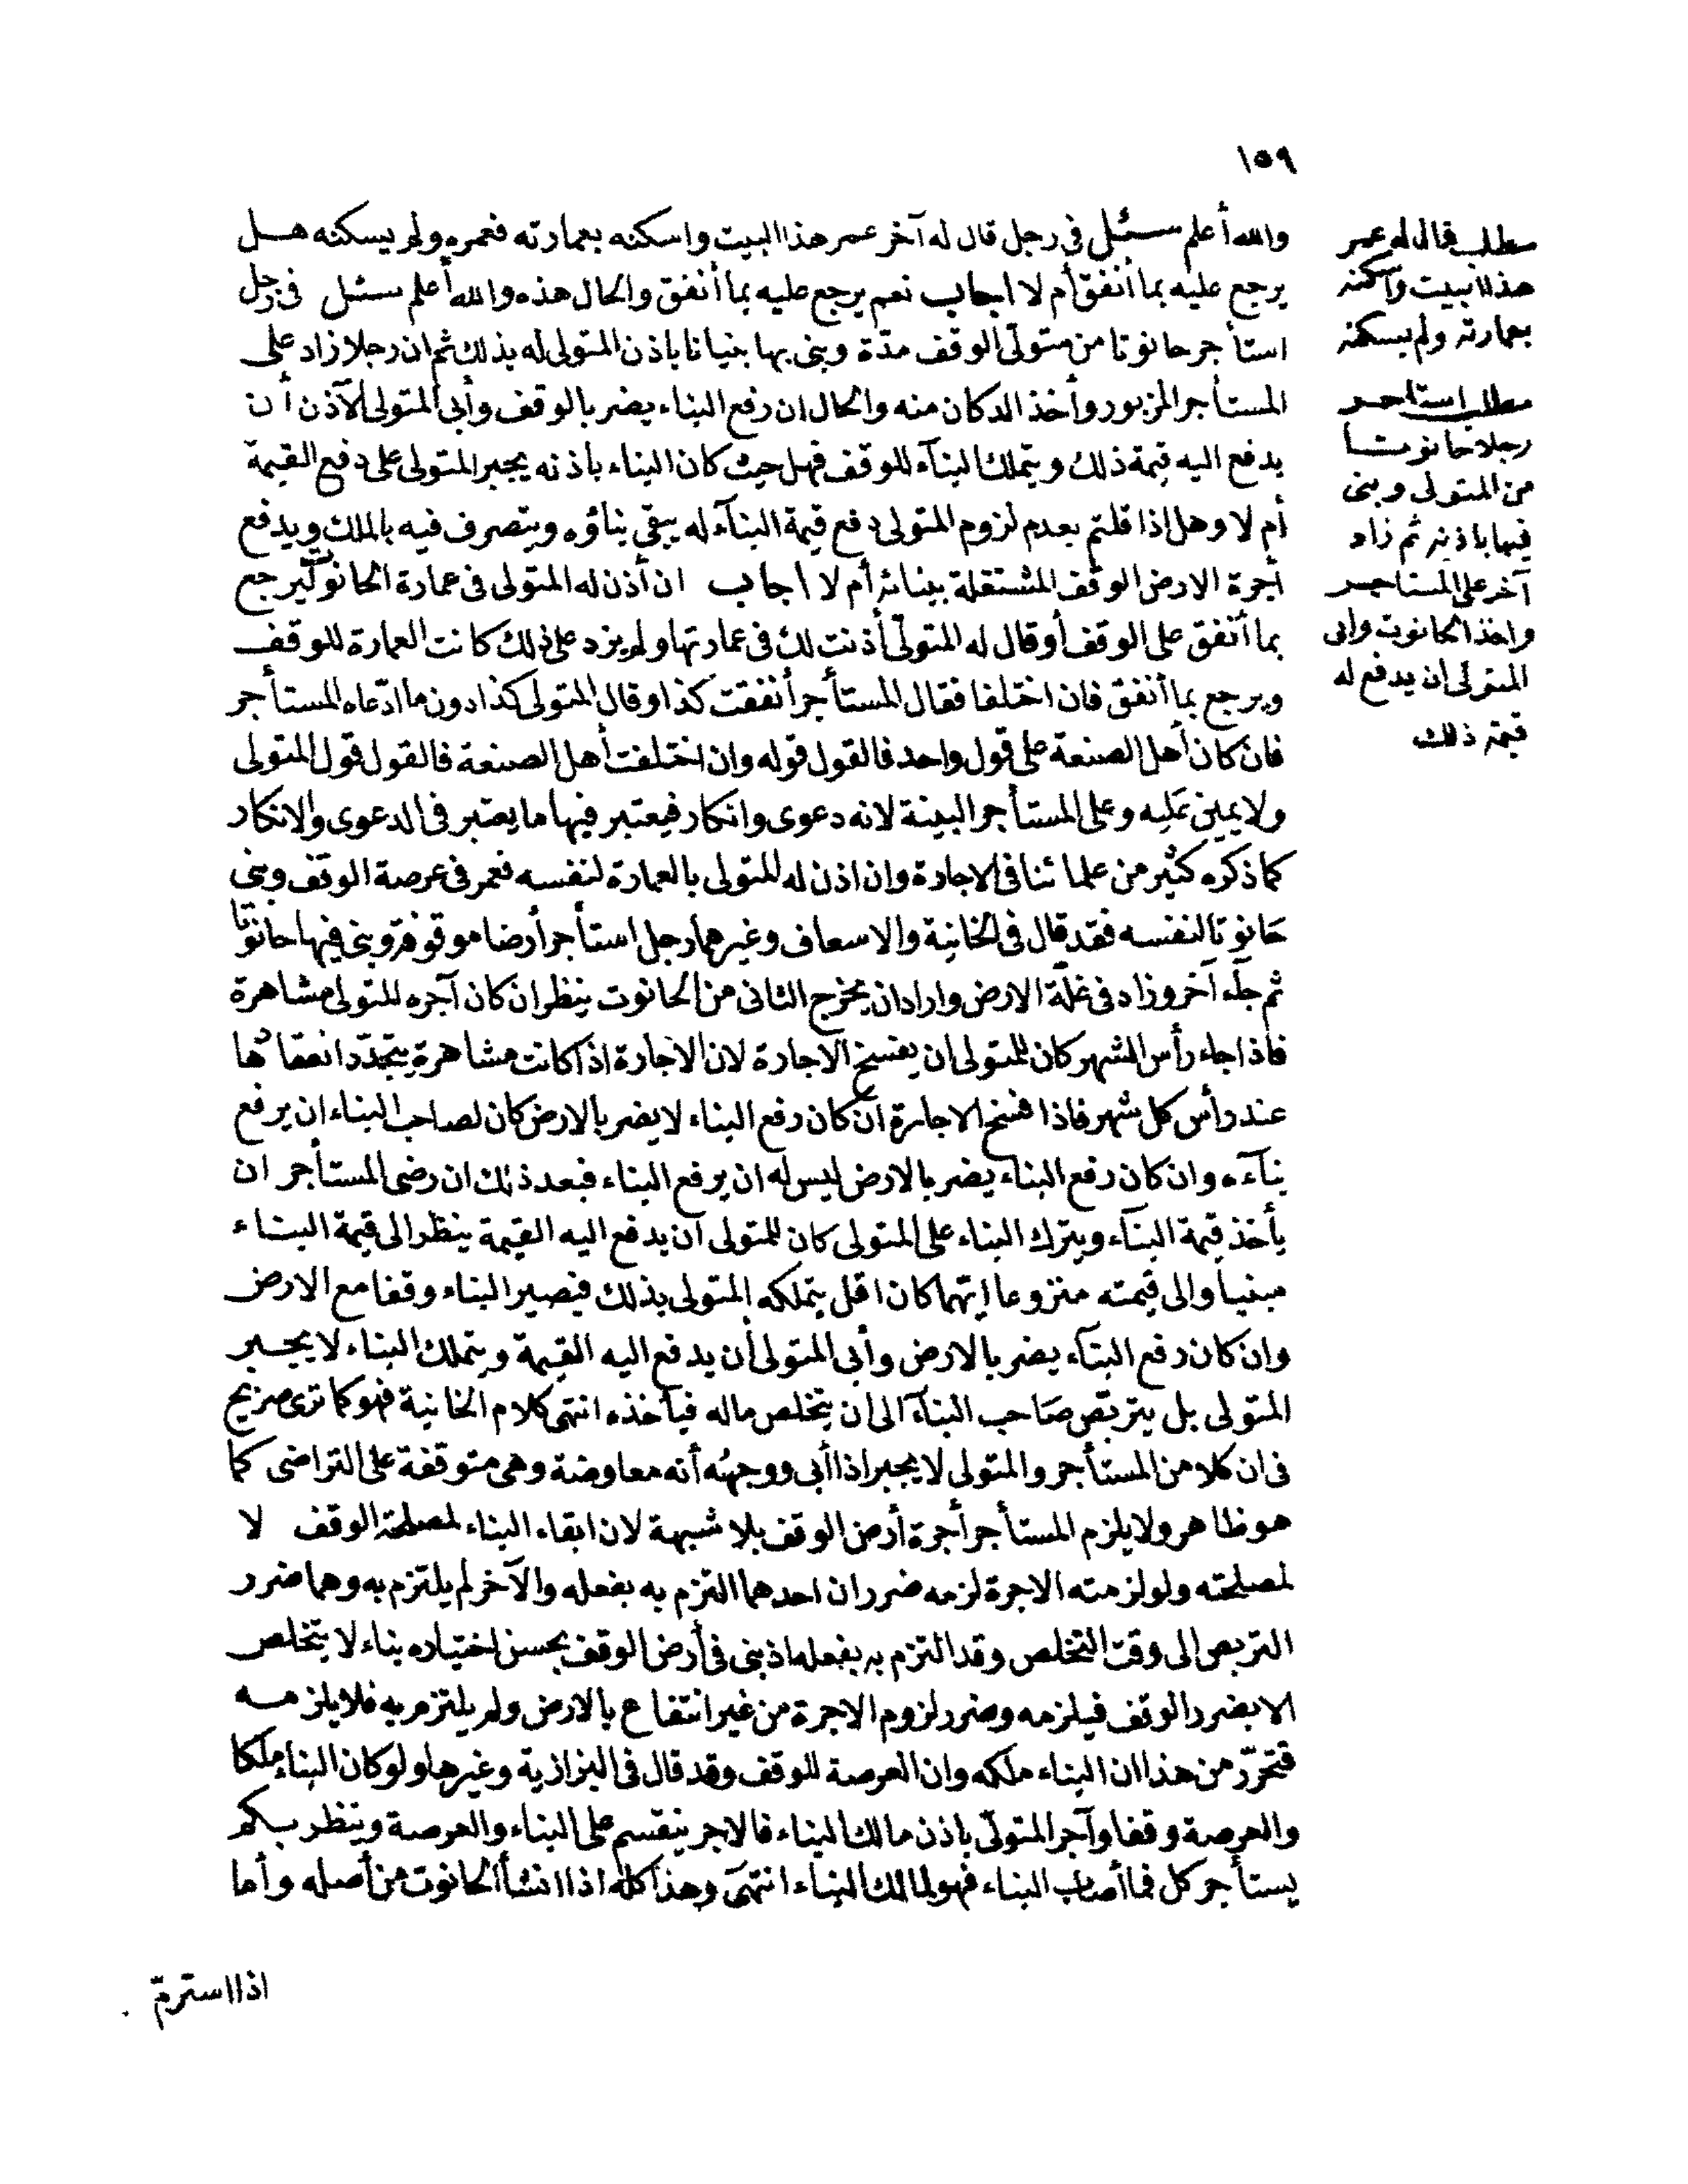 ١٥٩
والله أعلم سئل في رجل قال له آخر عمر هذا البيت واسكنه بعمارته فعمره ولم يسكنه هل
يرجع عليه بما أنفق أم لا اجاب نعم يرجع عليه بما أنفق والحال هذه والله أعلم سئل في رجل
استأجر حانوتا من متولى الوقف مدّة وبنى بها بنيانا باذن المتولى له بذلك ثم ان رجلا زاد على
المستأجر المزبور وأخذ الدكان منه والحال ان رفع البناء يضر بالوقف وأبى المتولى الآذن أن
يدفع اليه قيمة ذلك ويتملك البنآء للوقف فهل حيث كان البناء باذنه يجبر المتولى على دفع القيمة
أم لا وهل اذا قلتم بعدم لزوم المتولى دفع قيمة البنآء له يبقى بناؤه ويتصرف فيه بالملك ويدفع
أجرة الارض الوقف المشتغلة ببنائه أم لا اجاب ان أذن له المتولى في عمارة الحانوت ليرجع
بما أنفق على الوقف أو قال له المتولّى أذنت لك في عمارتها ولم يزد على ذلك كانت العمارة للوقف
ويرجع بما أنفق فان اختلفا فقال المستأجر أنفقت كذا وقال المتولى كذا دون ما ادّعاه المستأجر
فان كان أهل الصنعة على قول واحد فالقول قوله وان اختلفت أهل الصنعة فالقول قول المتولى
ولا يمين عليه وعلى المستأجر البينة لانه دعوى وانكار فيعتبر فيها ما يعتبر في الدعوى والانكار
كما ذكره كثير من علمائنا في الاجارة وان اذن له المتولى بالعمارة لنفسه فعمر في عرصة الوقف وبنى
حانوتا لنفسه فقد قال في الخانية والاسعاف وغيرهما رجل استأجر أرضا موقوفة وبنى فيها حانوتا
ثم جآء آخر وزاد في غلّة الارض واراد ان يخرج الثاني من الحانوت ينظر ان كان آجره المتولى مشاهرة
فاذا جاء رأس الشهر كان للمتولى ان يفسخ الاجارة لان الاجارة اذا كانت مشاهرة يتجدّد انعقادها
عند رأس كل شهر فاذا فسخ الاجارة ان كان رفع البناء لا يضر بالارض كان لصاحب البناء ان يرفع
بنآءه وان كان رفع البناء يضر بالارض ليس له ان يرفع البناء فبعد ذلك ان رضى المستأجر ان
يأخذ قيمة البنآء ويترك البناء على المتولى كان للمتولى ان يدفع اليه القيمة ينظر الى قيمة البناء
مبنيا والى قيمته منزوعا ايّهما كان اقل يتملكه المتولى بذلك فيصير البناء وقفا مع الارض
وان كان رفع البنآء يضر بالارض وأبى المتولى أن يدفع اليه القيمة ويتملك البناء لا يجبر
المتولى بل يتربّص صاحب البنآء الى ان يتخلص ماله فيأخذه انتهى كلام الخانية فهو كما ترى صريح
في ان كلا من المستأجر والمتولى لا يجبر اذا أبى ووجهه أنه معاوضة وهى متوقفة على التراضى كما
هو ظاهر ولا يلزم المستأجر أجرة أرض الوقف بلا شبهة لان ابقاء البناء لمصلحة الوقف لا
لمصلحته ولو لزمته الاجرة لزمه ضرران احدهما التزم به بفعله والآخر لم يلتزم به وهما ضرر
التربص الى وقت التخلص وقد التزم به بفعله اذ بنى في أرض الوقف بحسن اختياره بناء لا يتخلص
الا بضرر الوقف فيلزمه وضرر لزوم الاجرة من غير انتفاع بالارض ولم يلتزم به فلا يلزمه
فتحرّر من هذا ان البناء ملكه وان العرصة للوقف وقد قال في البزازية وغيرها ولو كان البناء ملكا
والعرصة وقفا وآجر المتولّى باذن مالك البناء فالاجر ينقسم على البناء والعرصة وينظر بكم
يستأجر كل فما أصاب البناء فهو لمالك البناء انتهى وهذا كله اذا انشأ الحانوت من أصله وأما
اذا استرمّ
مطلب قال له عمر
هذا البيت واسكنه
بعمارته ولم يسكنه
مطلب استاجر
رجلا حانوتا
من المتولى وبنى
فيها باذنه ثم زاد
آخر على المستاجر
واخذ الحانوت وابى
المتولى ان يدفع له
قيمة ذلك